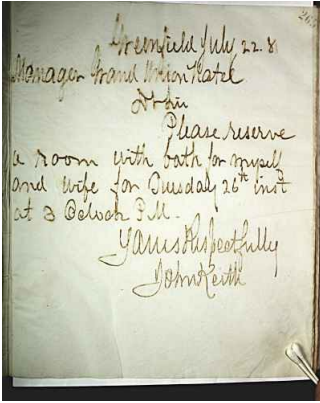 Greenfield July 22. 81
Manager Grand Union Hotel
Dr Sir
Please reserve
a room with bath for myself
and wife for Tuesdaly 26th inst
at 3 Oclock P.M.
Yours Respectfully
John Keith